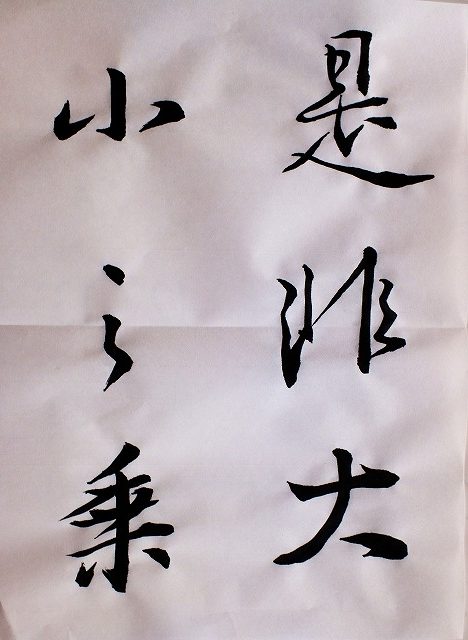 是非大
小之乗